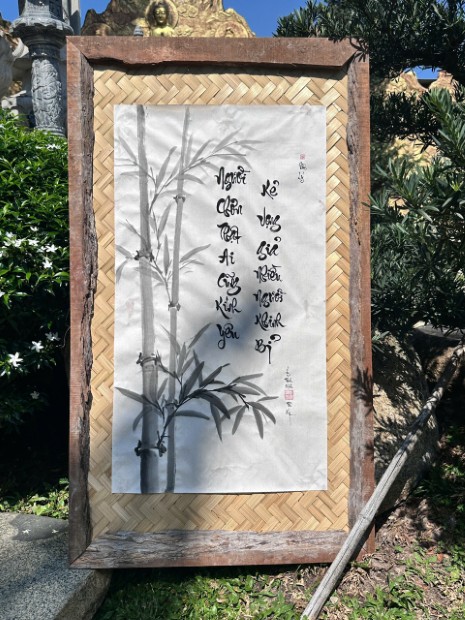 Người Chân Thật Ai Cũng Kính Yêu
Kẻ Vọng Giả Nhiều Người Khinh Bỉ